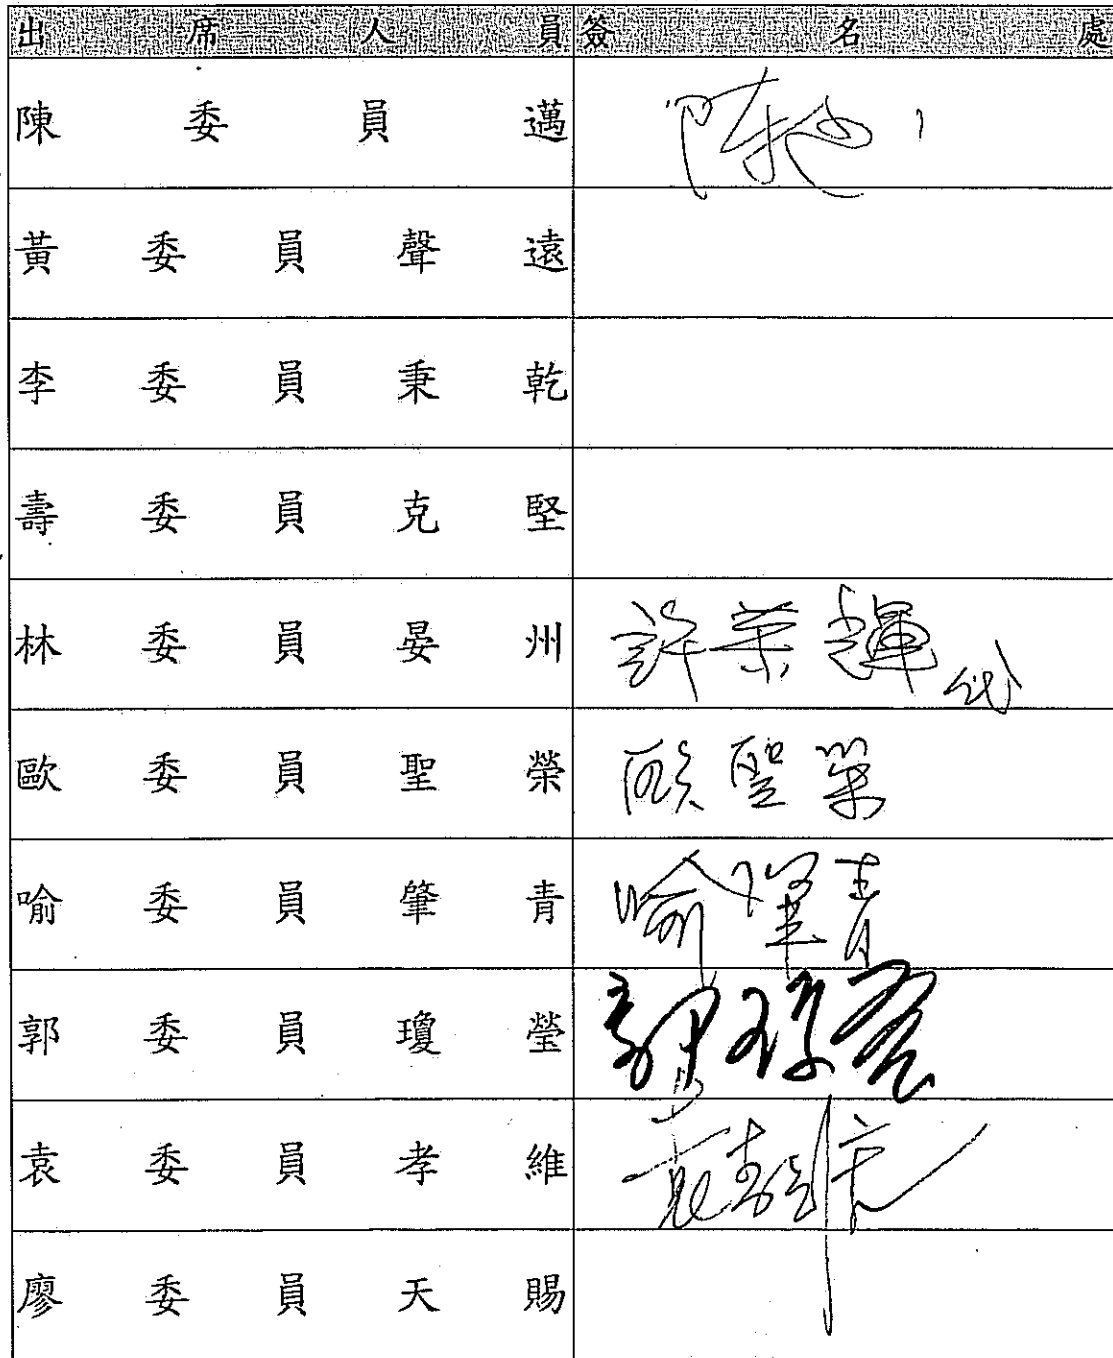 出席人員 簽名處
陳委員邁 陳邁
黃委員聲遠
李委員秉乾
壽委員克堅
林委員晏州 許榮輝代
歐委員聖榮 歐聖榮
喻委員肇青 喻肇青
郭委員瓊瑩 郭瓊瑩
袁委員孝維 袁孝維
廖委員天賜